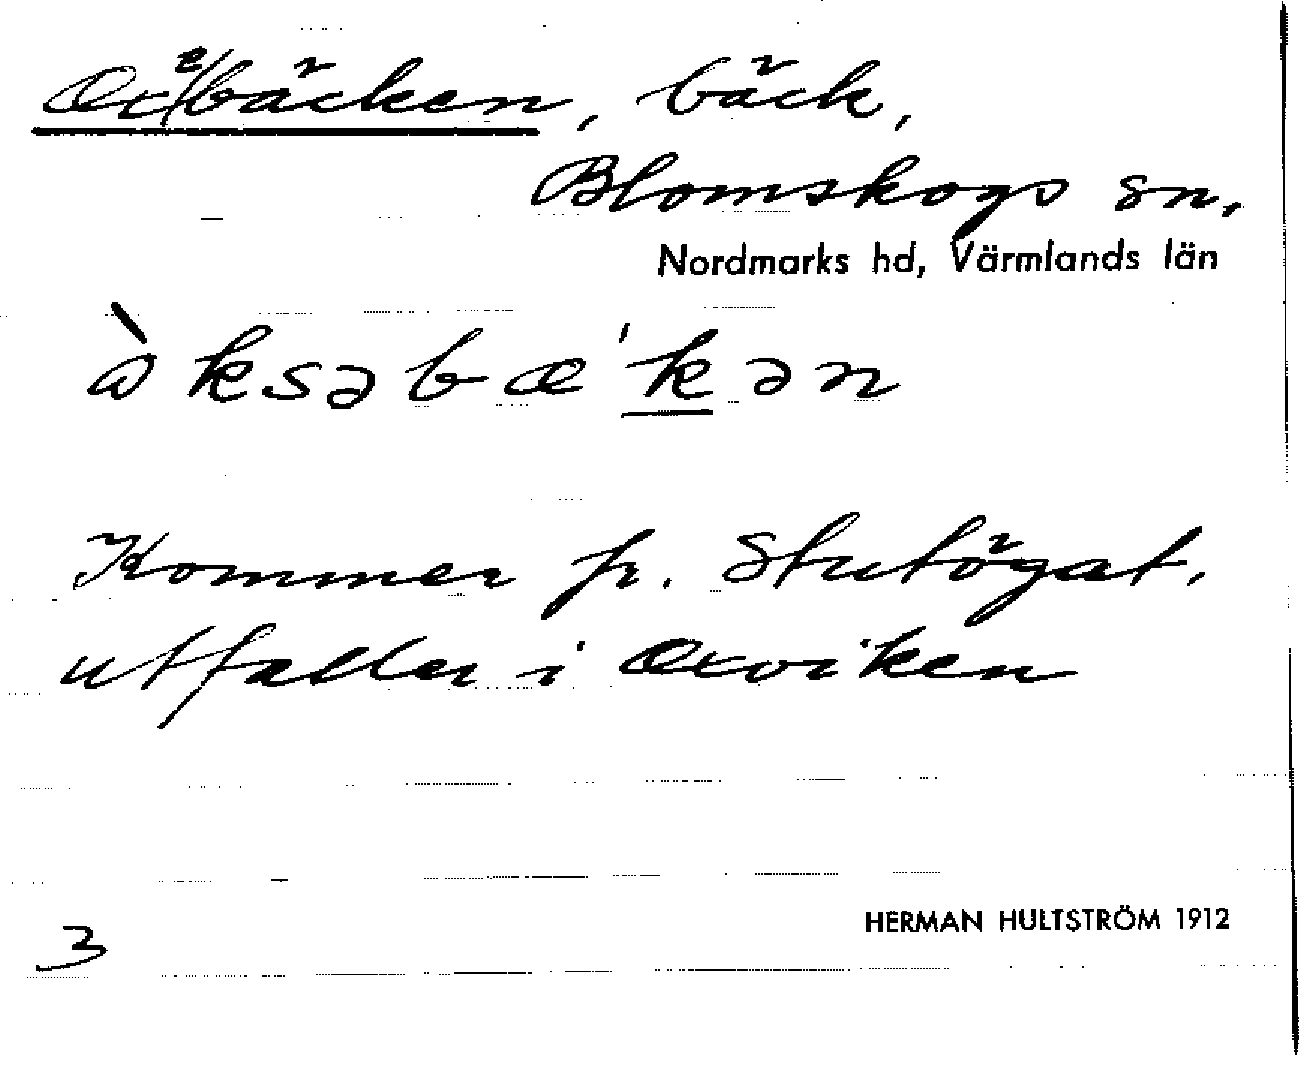 Oxebäcken, bäck,
Blomskogs sn,
Nordmarks hd, Värmlands län
ɷ̀ksəbæ'kən
Kommer fr. Stutögat,
utfaller i Oxviken
HERMAN HULTSTRÖM 1912
3